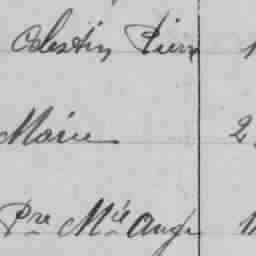 Célestin Pierr 1
Marie 2
Pre Mie Ange 1